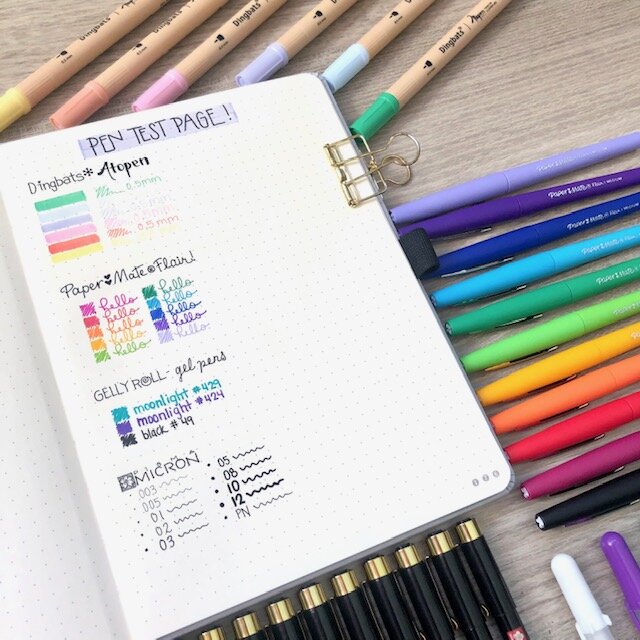 PEN TEST PAGE!
Dingbats* Atopen
0.5mm
0.5mm
Paper Mate® Flair!
hello hello
hello hello
hello hello
hello hello
hello hello
GELLY ROLL- gel pens
moonlight #429
moonlight #424
black #49
MICRON
003 • 05
005 • 08
• 01 • 10
• 02 • 12
• 03 PN
Dingbats*
Dingbats*
Dingbats*
Dingbats*
Dingbats* Atopen
Paper Mate Flair
Paper Mate Flair
Paper Mate Flair
Paper Mate Flair
Paper Mate Flair